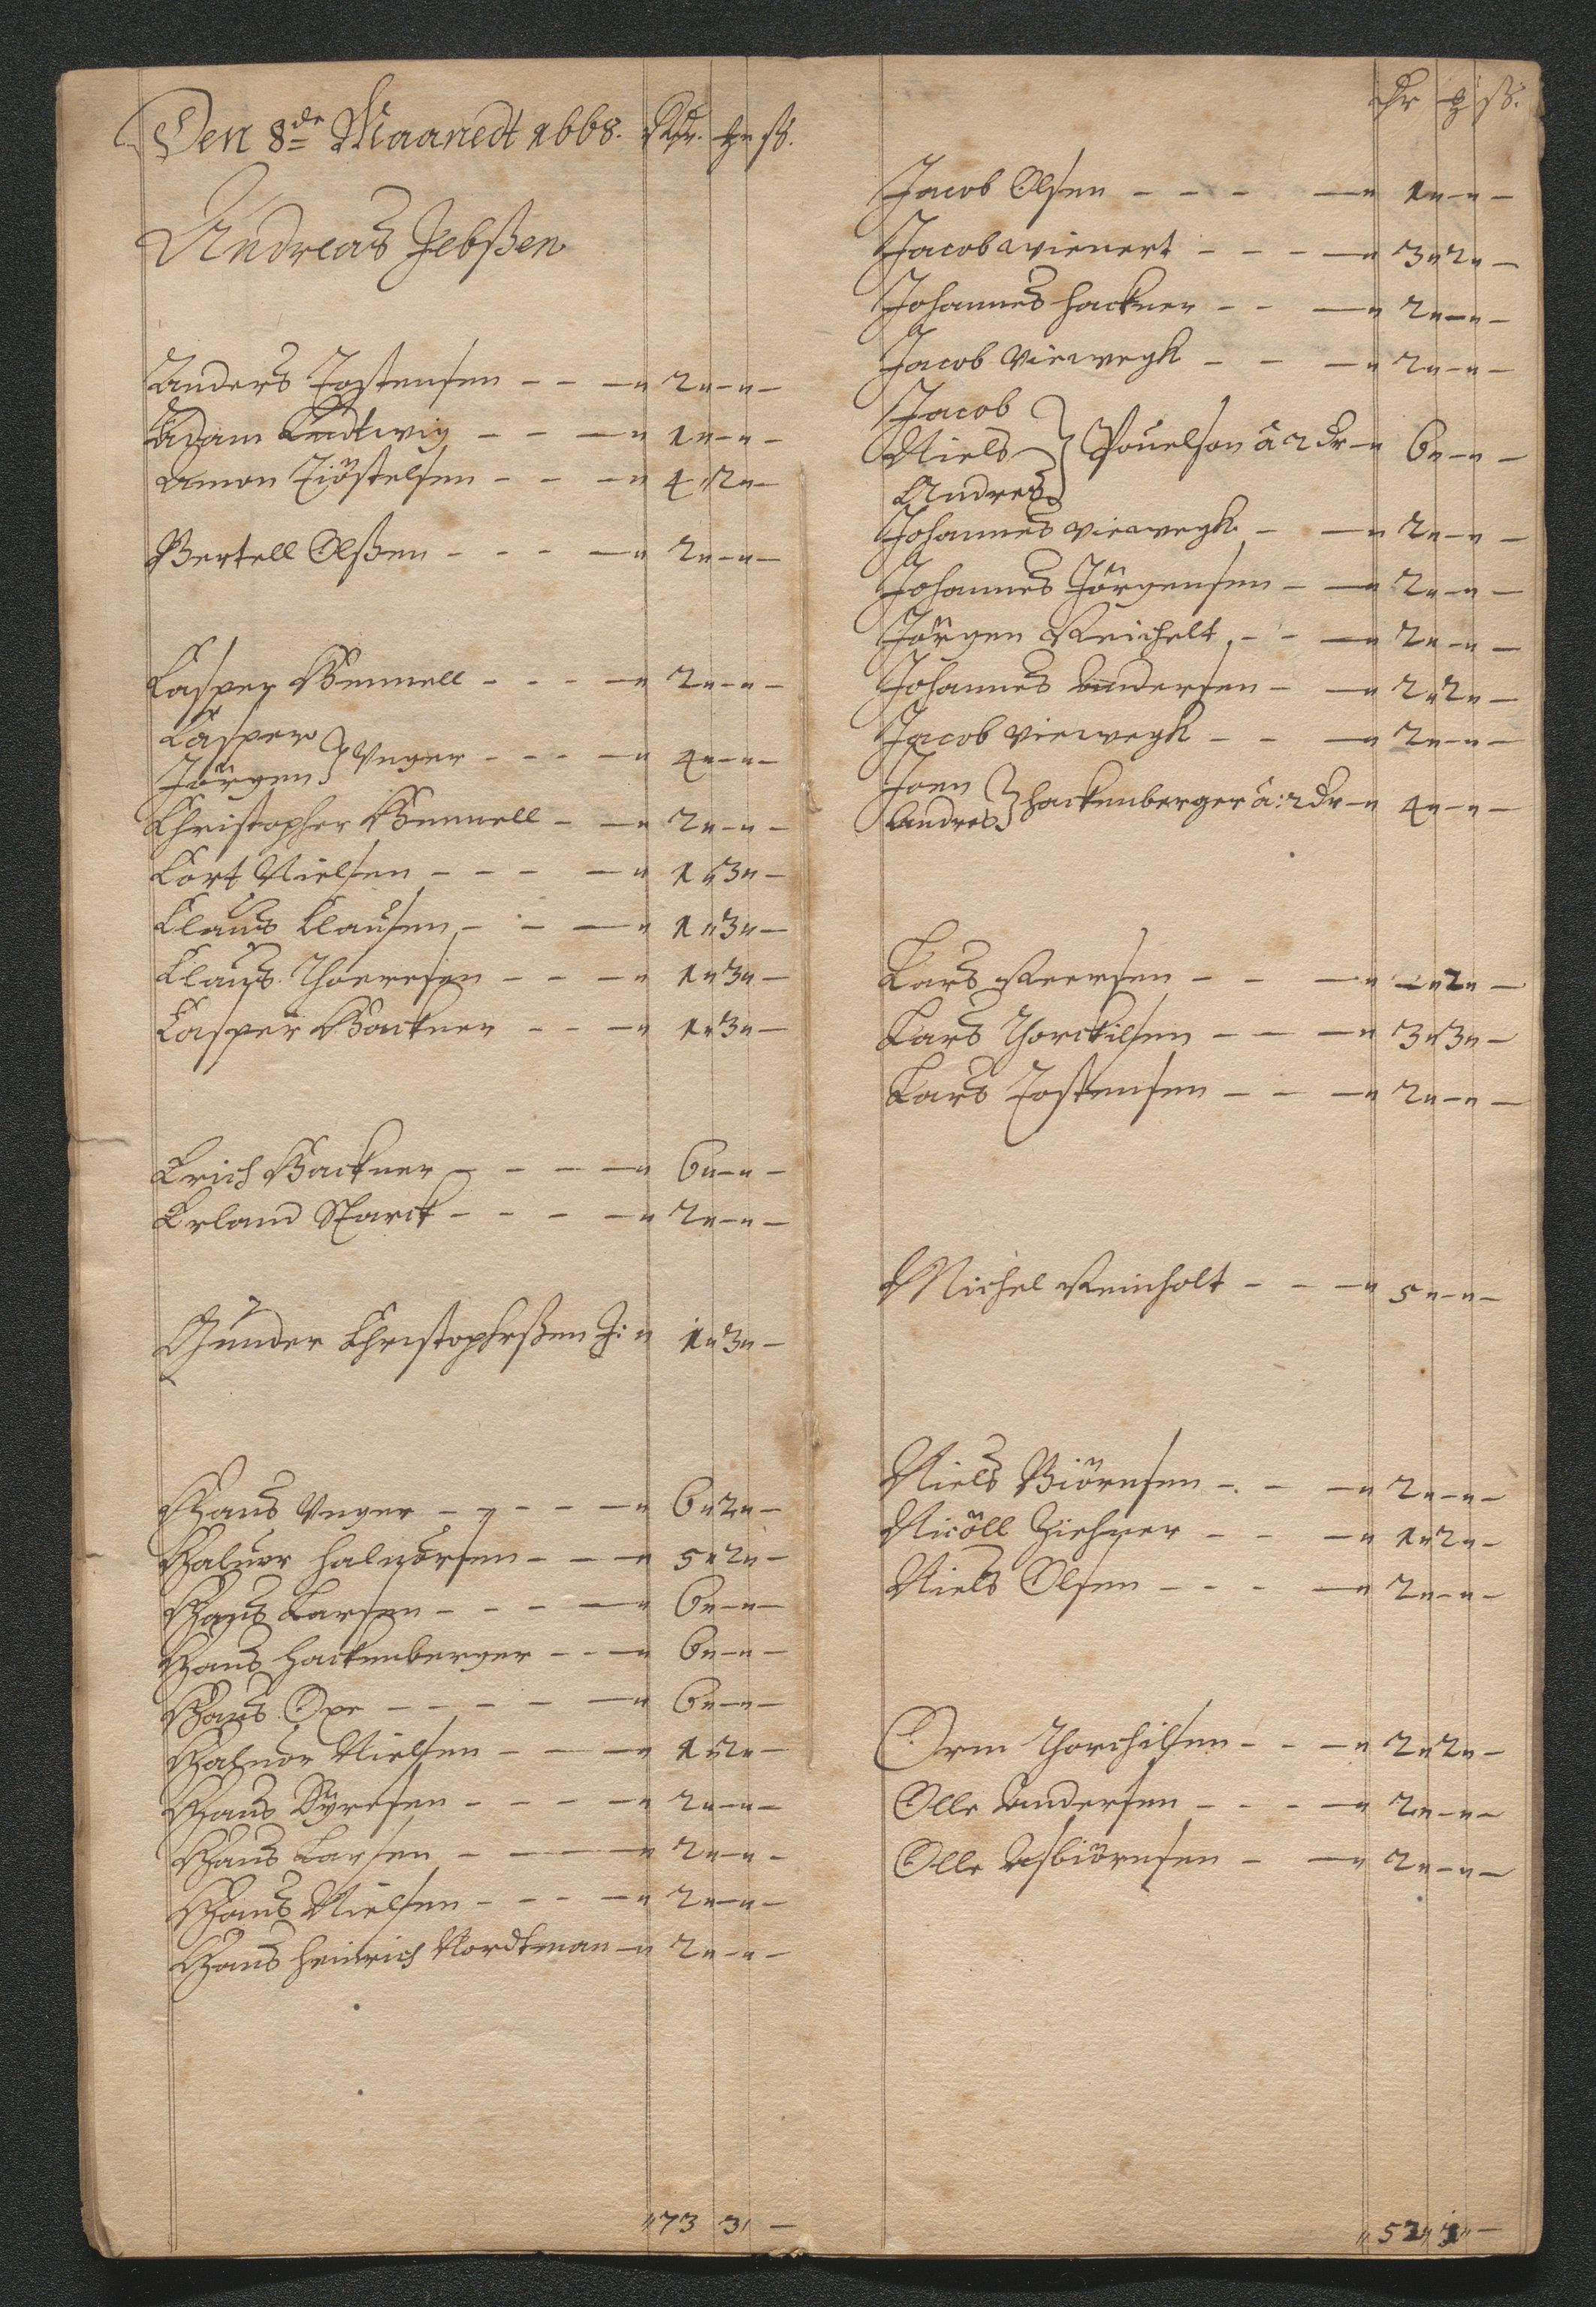 Den 8de Maanedt 1668. Rdr. ₰ ß.
Andreas Jebßen
Anders Tostensen - - - 2 " - " -
Adam Ludtwig - - - 1 " - " -
Amon Tiöstelsen - - - 4 " 2 " -
Bertell Olßen - - - 2 " - " -
Casper Bemmell - - - 2 " - " -
Casper
Jörgen } Unger - - - 4 " - " -
Christopher Bemmell - - 2 " - " -
Cort Nielsen - - - 1 " 3 " -
Claus Clausen - - - 1 " 3 " -
Claus Thoeresen - - - 1 " 3 " -
Casper Backner - - - 1 " 3 " -
Erich Backner - - - 6 " - " -
Erland Starck - - - 2 " - " -
Gunder Christophersßen 1 " 3 " -
Hans Unger - - - 6 " 2 " -
Haluor Haluorsen - - - 5 " 2 " -
Hans Larsen - - - 6 " - " -
Hans Hackenberger - - - 6 " - " -
Hans Oxe - - - 6 " - " -
Haluor Nielsen - - - 1 " 2 " -
Hans Syresen - - - 2 " - " -
Hans Larsen - - - 2 " - " -
Hans Nielsen - - - 2 " - " -
Hans Heinrich Nordtman - 2 " - " -
" 73 3 " -
Dr ₰ ß.
Jacob Olsen - - - 1 " - " -
Jacob Wienert - - - 3 " 2 " -
Johannes Hackner - - - 2 " - " -
Jacob Vierwegk - - - 2 " - " -
Jacob
Niels } Pouelson â 2 Dr - 6 " - " -
Andres
Johannes Vierwegk - - 2 " - " -
Johannes Jörgensen - - 2 " - " -
Jörgen Reichelt - - - 2 " - " -
Johannes Andersen - - 2 " 2 " -
Jacob Vierwegk - - - 2 " - " -
Joen
Andres } Hackenberger â: 2 Dr - 4 " - " -
Lars Reersen - - - - " 2 " -
Lars Thorckilsen - - - 3 " 3 " -
Lars Tostensen - - - 2 " - " -
Michel Reinholt - - - 5 " - " -
Niels Biörnsen - - - 2 " - " -
Nicöll Ziehner - - - 1 " 2 " -
Niels Olsen - - - 2 " - " -
Orm Thorchilsen - - - 2 " 2 " -
Olle Andersen - - - 2 " - " -
Olle Asbiörnsen - - 2 " - " -
" 52 " 1 " -